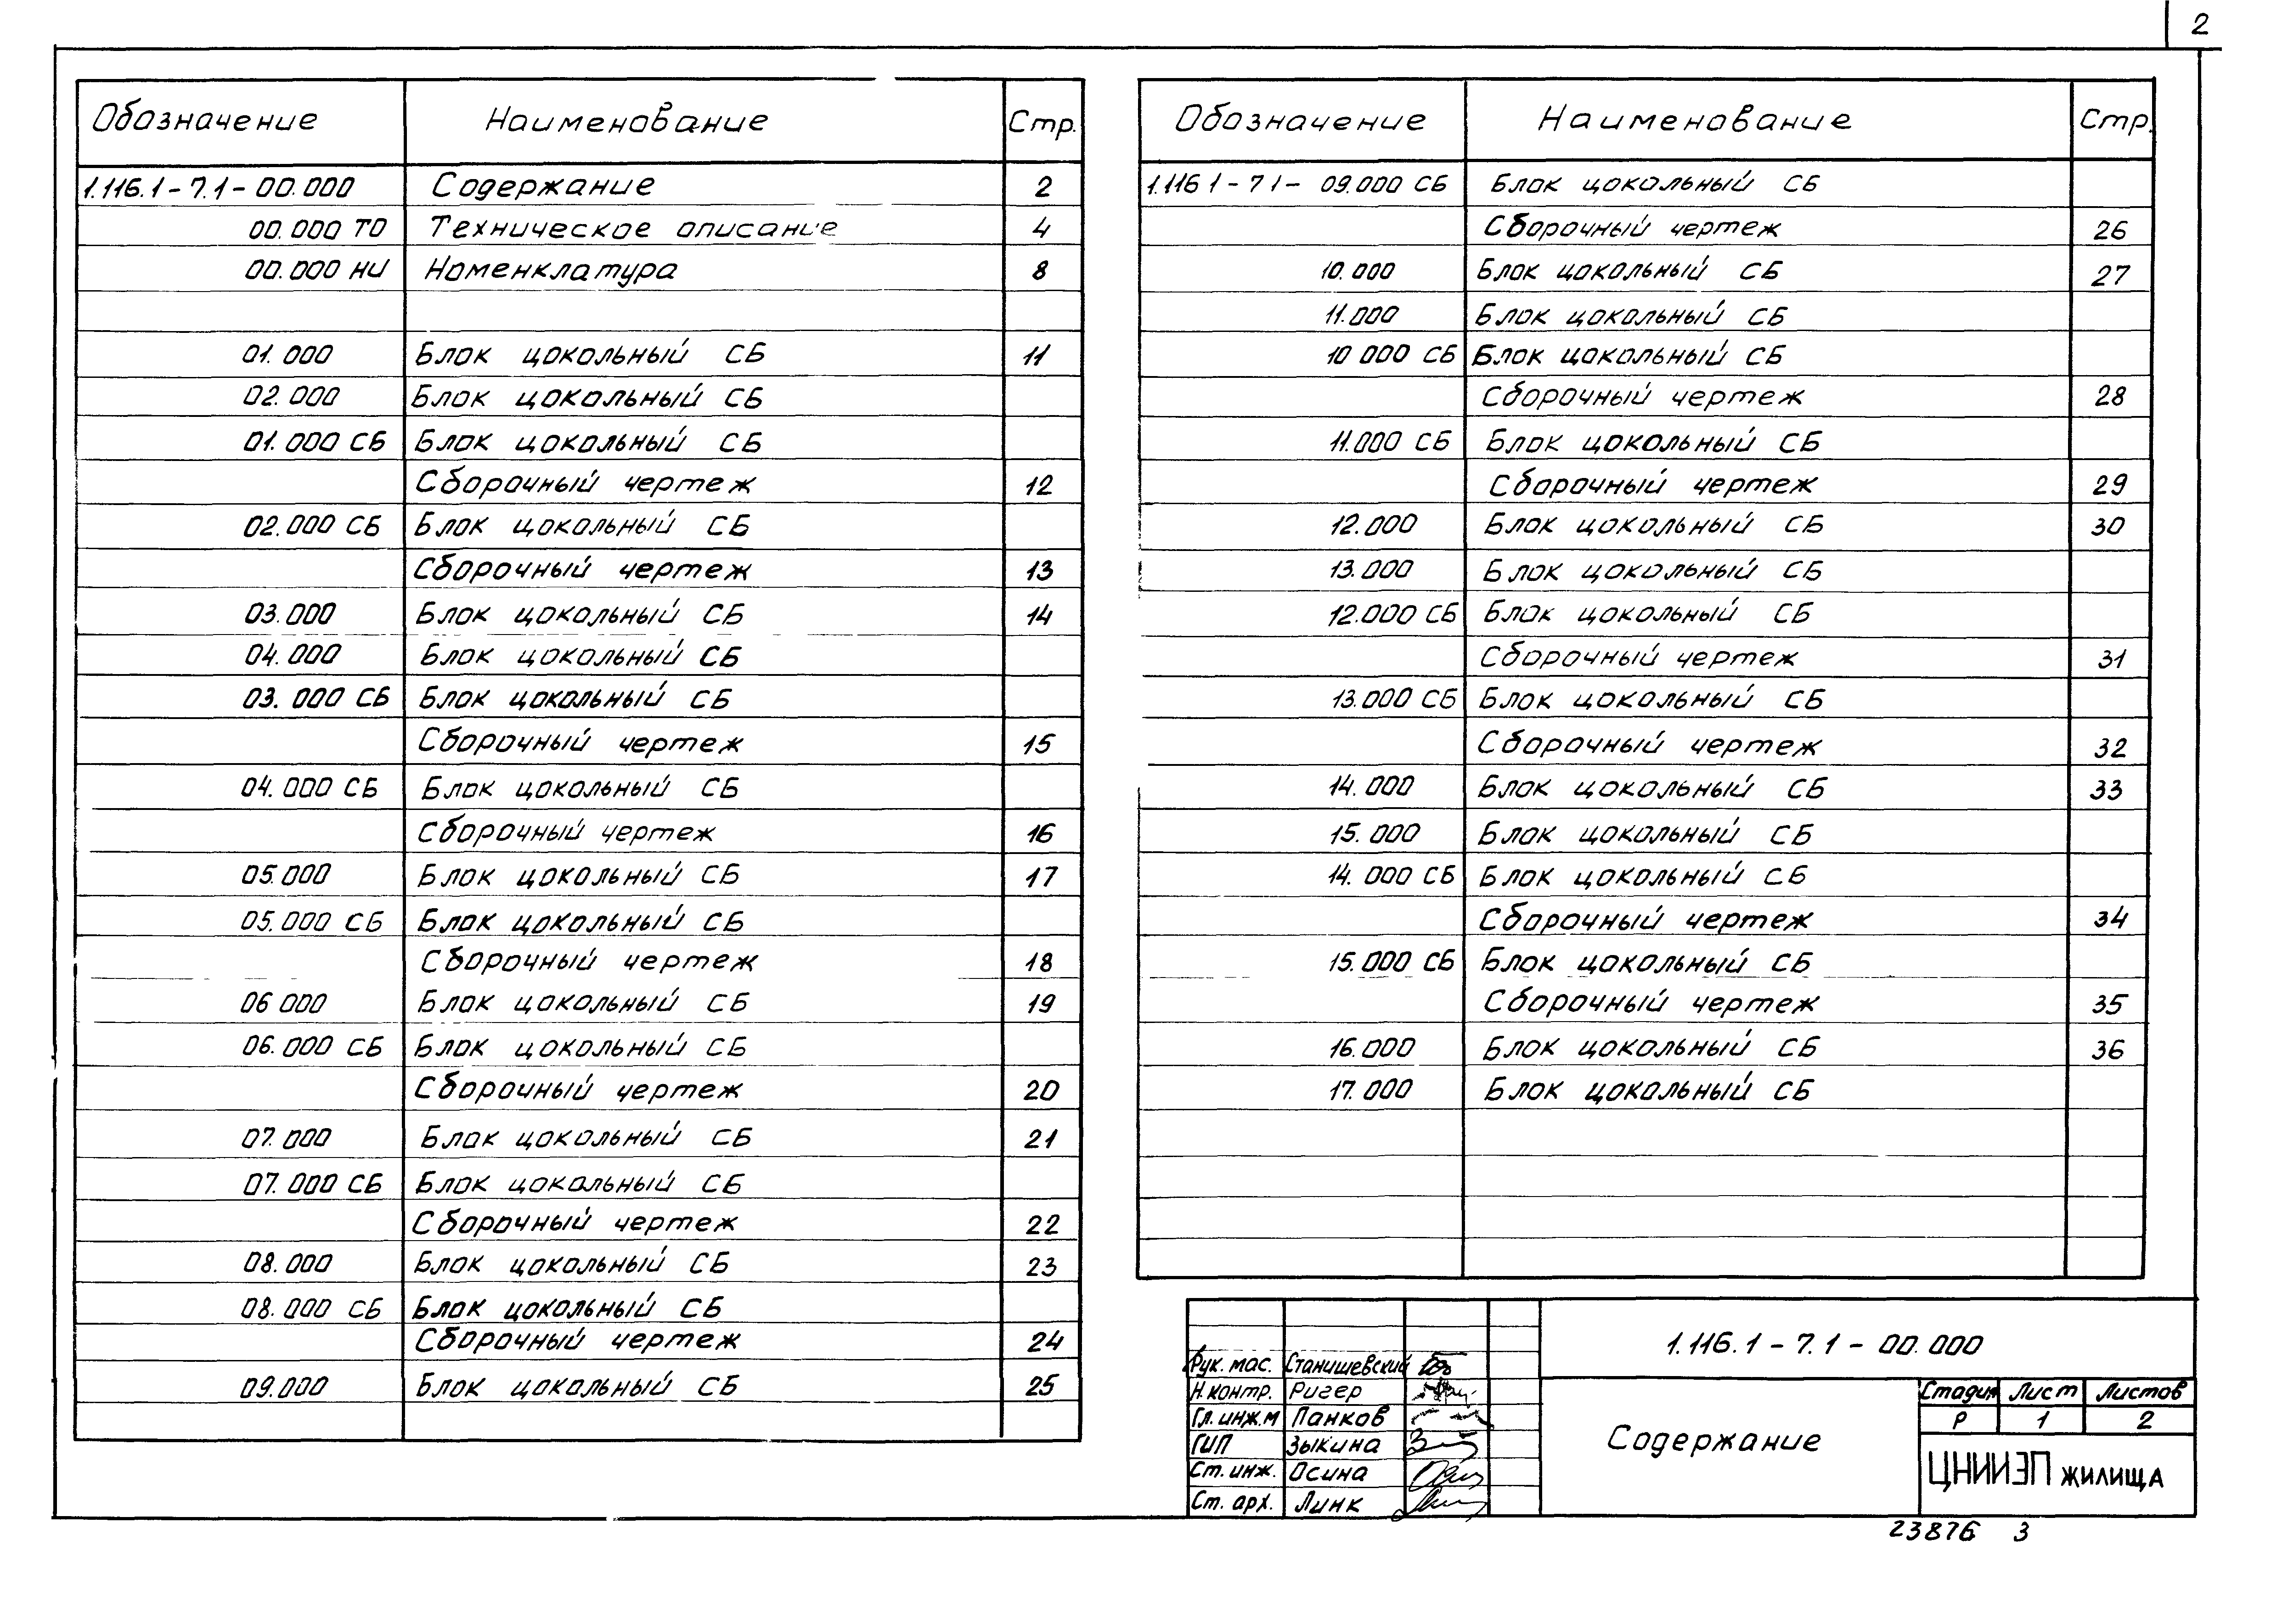 2
Обозначение Наименование Стр.
1.116.1-7.1-00.000 Содержание 2
00.000 ТО Техническое описание 4
00.000 НИ Номенклатура 8
01.000 Блок цокольный СБ 11
02.000 Блок цокольный СБ
01.000 СБ Блок цокольный СБ
Сборочный чертеж 12
02.000 СБ Блок цокольный СБ
Сборочный чертеж 13
03.000 Блок цокольный СБ 14
04.000 Блок цокольный СБ
03.000 СБ Блок цокольный СБ
Сборочный чертеж 15
04.000 СБ Блок цокольный СБ
Сборочный чертеж 16
05.000 Блок цокольный СБ 17
05.000 СБ Блок цокольный СБ
Сборочный чертеж 18
06 000 Блок цокольный СБ 19
06.000 СБ Блок цокольный СБ
Сборочный чертеж 20
07.000 Блок цокольный СБ 21
07.000 СБ Блок цокольный СБ
Сборочный чертеж 22
08.000 Блок цокольный СБ 23
08.000 СБ Блок цокольный СБ
Сборочный чертеж 24
09.000 Блок цокольный СБ 25
Обозначение Наименование Стр.
1.116 1-7 1- 09.000 СБ Блок цокольный СБ
Сборочный чертеж 26
10.000 Блок цокольный СБ 27
11.000 Блок цокольный СБ
10 000 СБ Блок цокольный СБ
Сборочный чертеж 28
11.000 СБ Блок цокольный СБ
Сборочный чертеж 29
12.000 Блок цокольный СБ 30
13.000 Блок цокольный СБ
12.000 СБ Блок цокольный СБ
Сборочный чертеж 31
13.000 СБ Блок цокольный СБ
Сборочный чертеж 32
14.000 Блок цокольный СБ 33
15.000 Блок цокольный СБ
14.000 СБ Блок цокольный СБ
Сборочный чертеж 34
15.000 СБ Блок цокольный СБ
Сборочный чертеж 35
16.000 Блок цокольный СБ 36
17.000 Блок цокольный СБ
1.116.1-7.1-00.000
Рук. мас. Станишевский
Н.контр. Ригер
Гл.инж.м Панков
ГИП Зыкина
Ст. инж. Осина
Ст. арх. Линк
Содержание
Стадия Лист Листов
Р 1 2
ЦНИИЭП жилища
23876 3